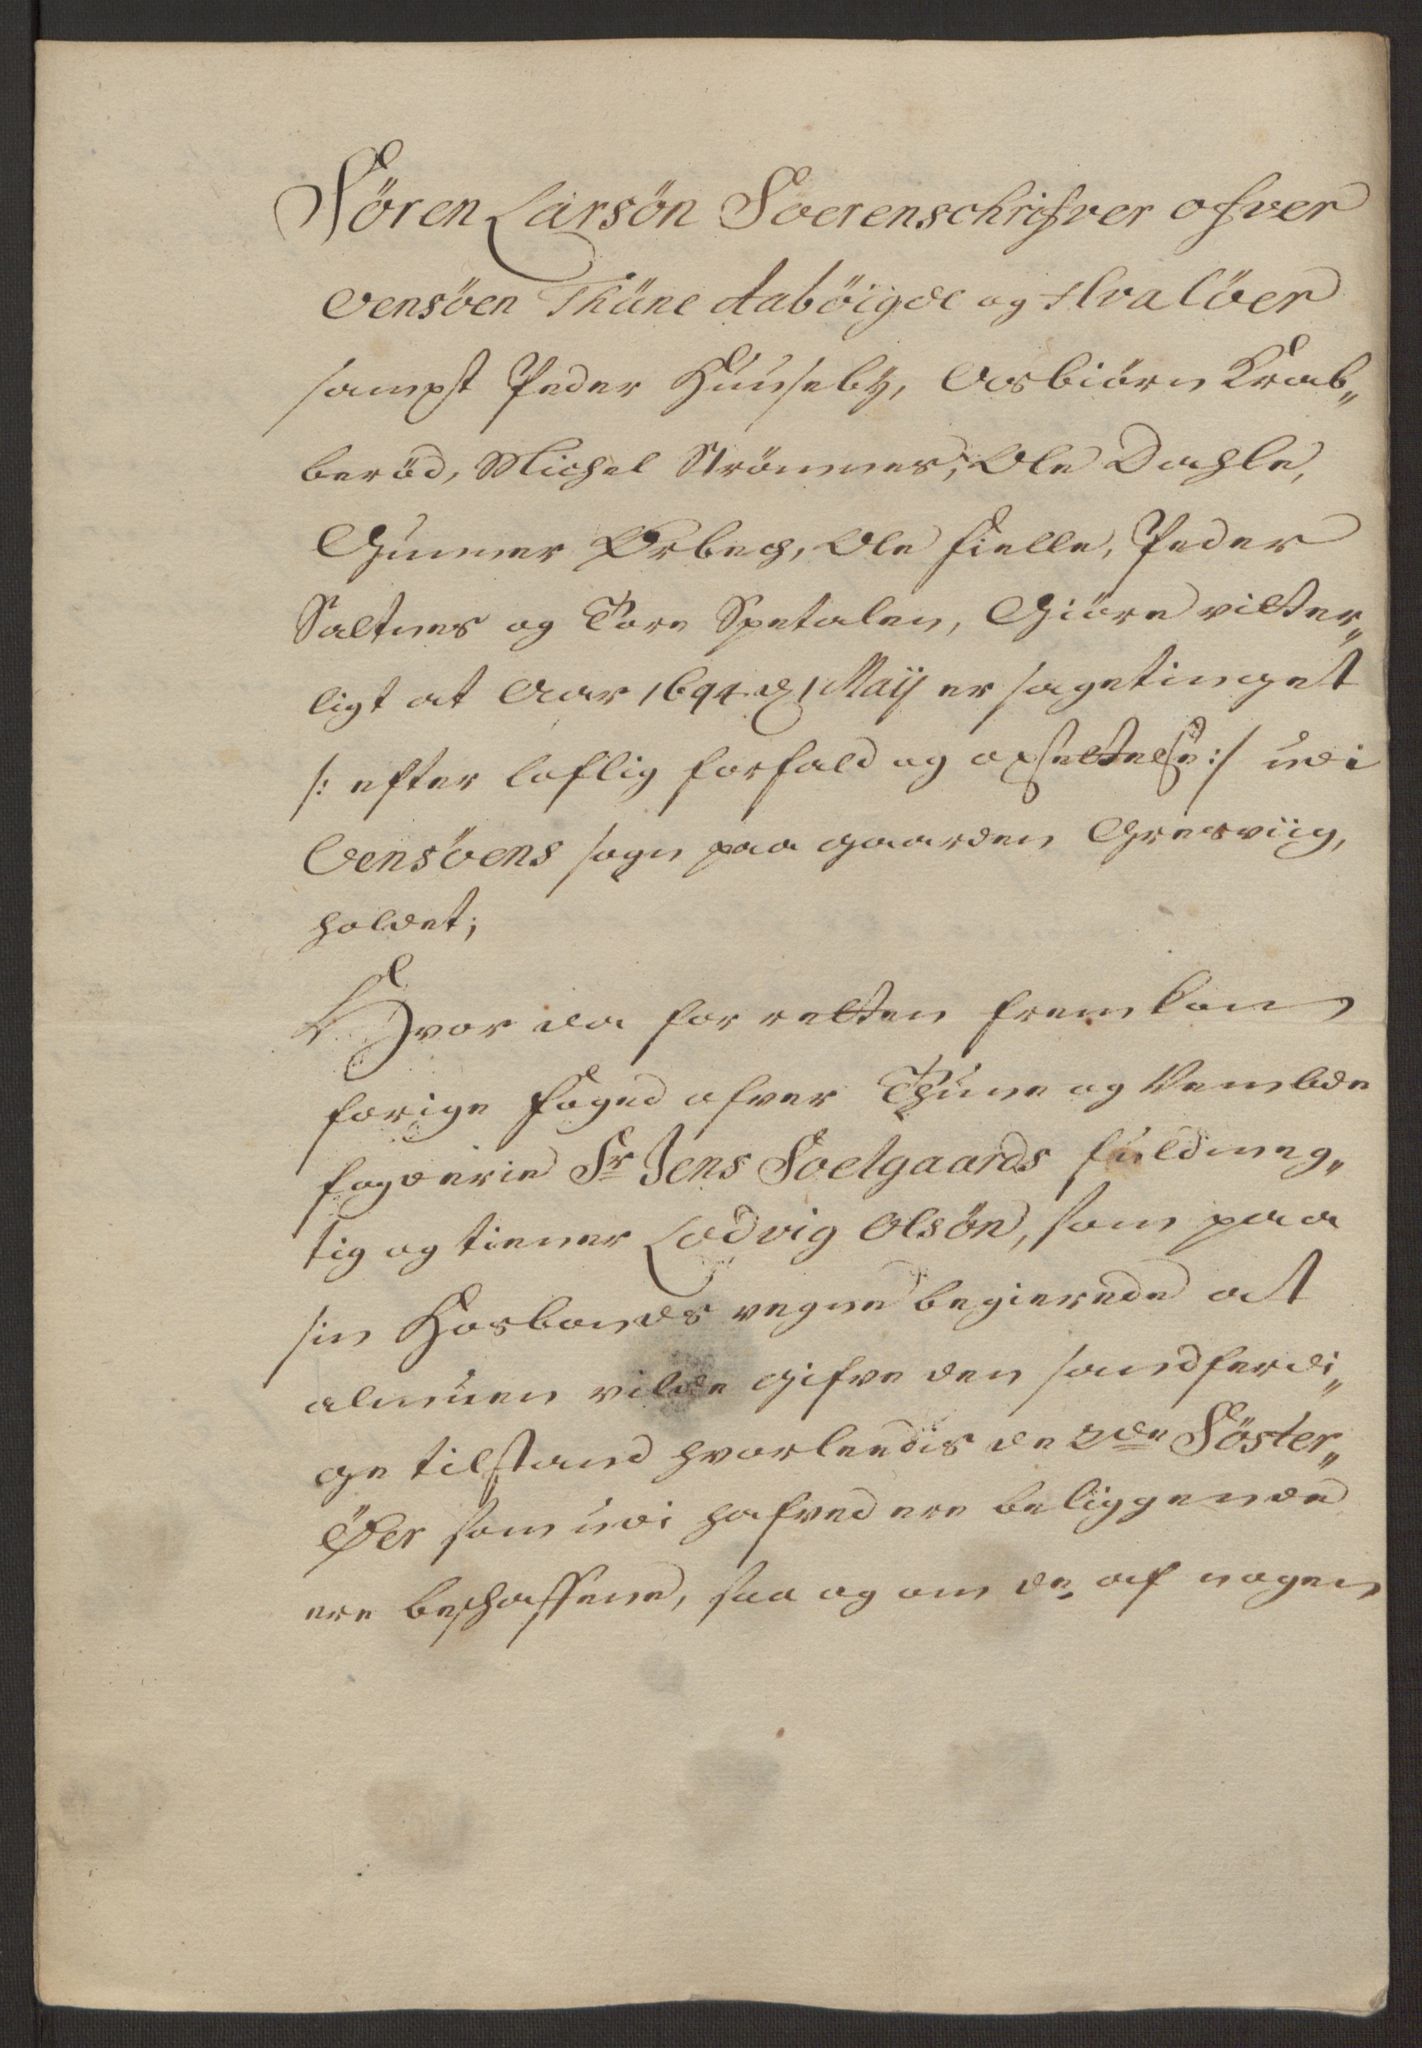 Sören Larsön Soerenschrifver ofver
Oensöen Thüne Aaböigde og Hvalöer
sampt Peder Huuseby, Asbiörn Krab„
beröd, Michel Strömnes, Ole Dahle,
Gunner Ørbech, Ole Fielle, Peder
Saltnes og Tore Spetalen, Giöre vitter„
ligt at Aar 1694 d 1 Maij er sagetinget
/: efter loflig forfald og opsettelse :/ udi
Oensöens sogn paa gaarden Gresviig,
holdet;
Hvor da for retten fremkom
forige foged ofver Thune og Vembde
fogderie Sr Jens Soelgaards fuldmeg„
tig og tienner Lodvig Olsön, som paa
sin Hosbonds vegne begierede at
almuen vilde gifve den sandferdi„
ge tilstand hvorleedis de 2de Söster„
Öer som udi hafved ere beliggende
ere beschaffene, saa og om de af nogen